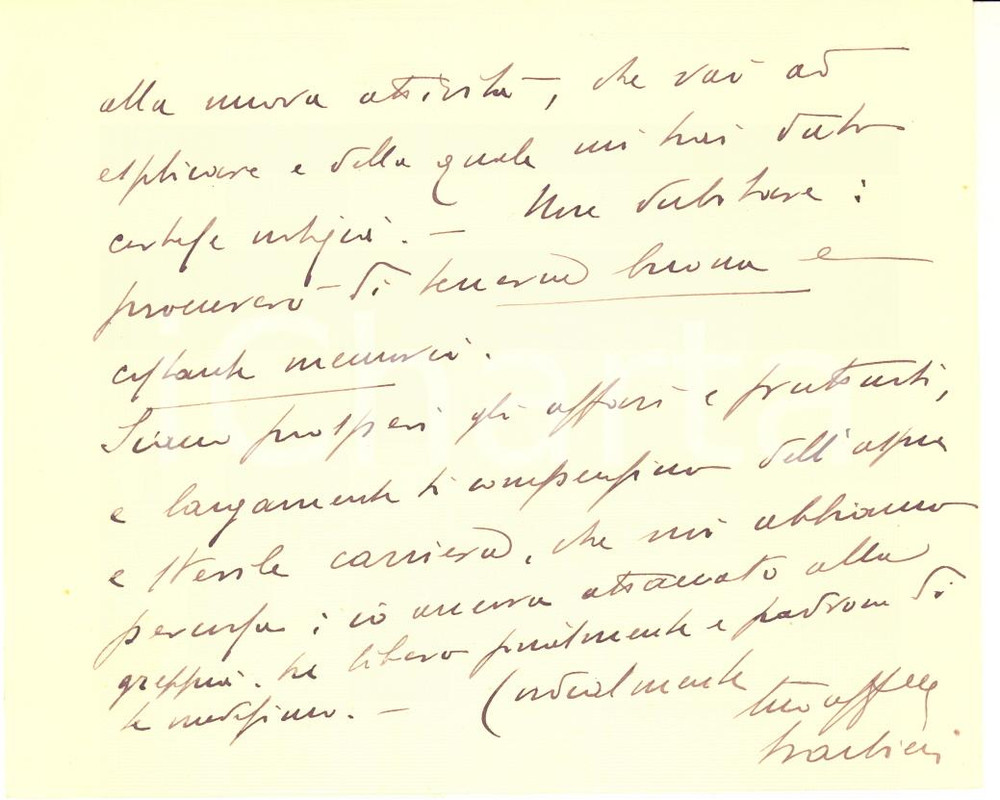 alla nuova attività, che vai ad
esplicare e della quale mi hai dato
cortese notizia. — Non dubitare :
procurerò di tenerne buona e
costante memoria.
Siano prosperi gli affari e fruttuosi,
e largamente ti compensino dell'aspra
e sterile carriera, che noi abbiamo
percorsa ; io ancora attaccato alla
greppia, tu libero finalmente e padrone di
te medesimo. — Cordialmente
tuo aff